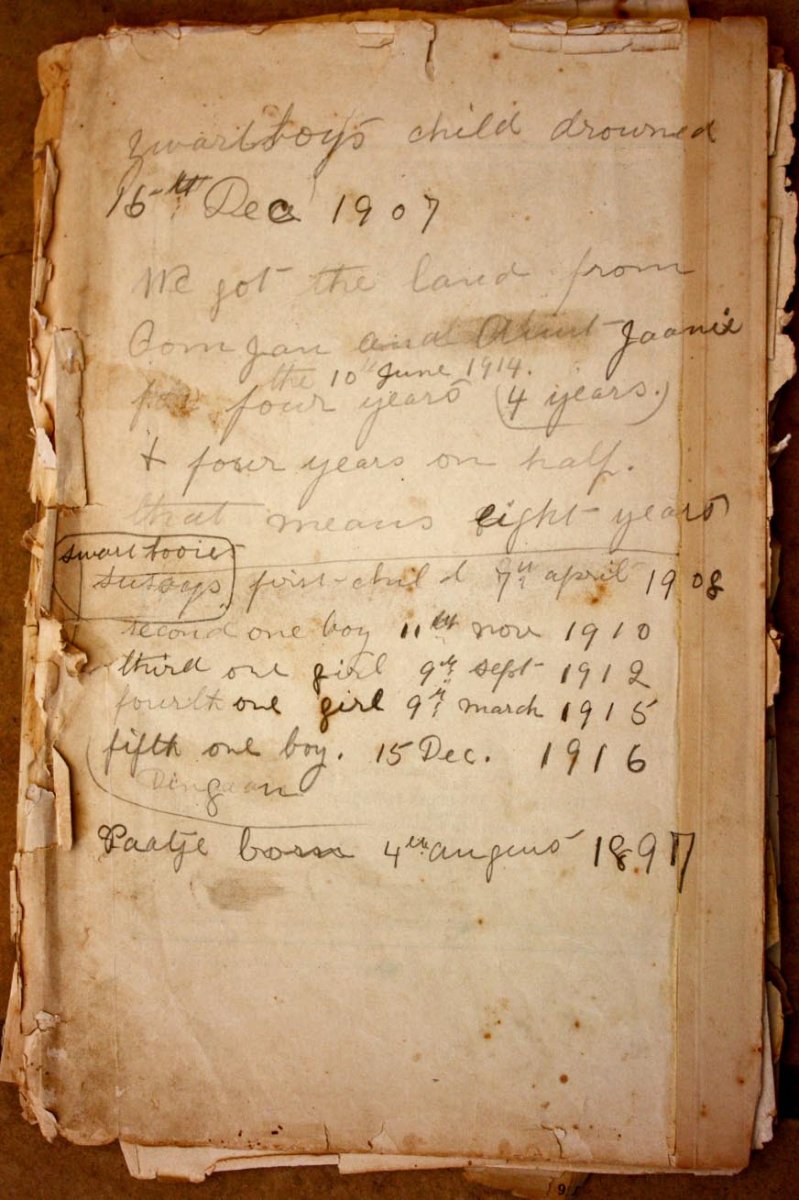 Zwartboys child drowned
16th Dec 1907
We got the land from
Oom Jan and Aunt Jaanie
the 10th June 1914.
for four years (4 years.)
+ four years on half.
that means eight years
swartbooies
first child 7th april 1908
second one boy 11th nov 1910
third one girl 9th sept 1912
fourth one girl 9th march 1915
fifth one boy. 15 Dec. 1916
Dingaan
Paatje born 4th augus 1897